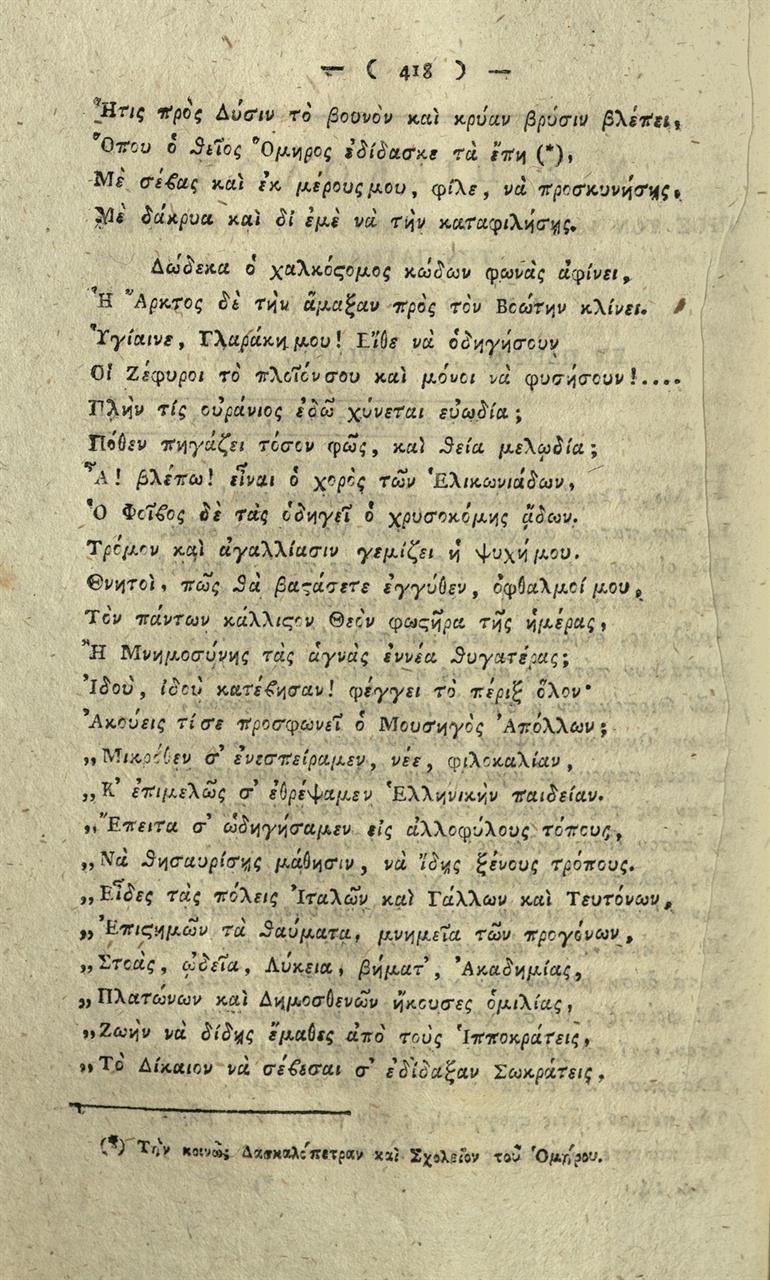 — ( 418 ) —
Ἥτις πρὸς Δύσιν τὸ βουνὸν καὶ κρύαν βρύσιν βλέπει,
Ὅπου ὁ θεῖος Ὅμηρος ἐδίδασκε τὰ ἔπη (*),
Μὲ σέβας καὶ ἐκ μέρους μου, φίλε, νὰ προσκυνήσῃς,
Μὲ δάκρυα καὶ δἰ ἐμὲ νὰ τὴν καταφιλήσῃς.
Δώδεκα ὁ χαλκόϛομος κώδων φωνὰς ἀφίνει,
Ἡ Ἄρκτος δὲ τὴν ἅμαξαν πρὸς τὸν Βοώτην κλίνει.
Ὑγίαινε, Γλαράκη μου! Εἴθε νὰ ὁδηγήσουν
Οἱ Ζέφυροι τὸ πλοῖόν σου καὶ μόνοι νὰ φυσήσουν!....
Πλὴν τίς οὐράνιος ἐδῶ χύνεται εὐωδία;
Πόθεν πηγάζει τόσον φῶς, καὶ θεία μελῳδία;
Ἆ! βλέπω! εἶναι ὁ χορὸς τῶν Ἑλικωνιάδων,
Ὁ Φοῖβος δὲ τὰς ὁδηγεῖ ὁ χρυσοκόμης ᾄδων.
Τρόμον καὶ ἀγαλλίασιν γεμίζει ἡ ψυχή μου.
Θνητοὶ, πῶς θὰ βαϛάσετε ἐγγύθεν, ὀφθαλμοί μου,
Τὸν πάντων κάλλιϛον Θεὸν φωϛῆρα τῆς ἡμέρας,
Ἢ Μνημοσύνης τὰς ἁγνὰς ἐννέα θυγατέρας;
Ἰδοὺ, ἰδοὺ κατέβησαν! φέγγει τὸ πέριξ ὅλον·
Ἀκούεις τί σε προσφωνεῖ ὁ Μουσηγὸς Ἀπόλλων;
„Μικρόθεν σ' ἐνεσπείραμεν, νέε, φιλοκαλίαν,
„Κ' ἐπιμελῶς σ' ἐθρέψαμεν Ἑλληνικὴν παιδείαν.
„Ἔπειτα σ' ὡδηγήσαμεν εἰς ἀλλοφύλους τόπους,
„Νὰ θησαυρίσῃς μάθησιν, νὰ ἴδῃς ξένους τρόπους.
„Εἶδες τὰς πόλεις Ἰταλῶν καὶ Γάλλων καὶ Τευτόνων,
„Ἐπιϛημῶν τὰ θαύματα, μνημεῖα τῶν προγόνων,
„Στοὰς, ᾠδεῖα, Λύκεια, βήματ', Ἀκαδημίας,
„Πλατώνων καὶ Δημοσθενῶν ἤκουσες ὁμιλίας,
„Ζωὴν νὰ δίδῃς ἔμαθες ἀπὸ τοὺς Ἱπποκράτεις,
„Τὸ Δίκαιον νὰ σέβεσαι σ' ἐδίδαξαν Σωκράτεις.
(*) Τὴν κοινῶς Δασκαλόπετραν καὶ Σχολεῖον τοῦ Ὁμήρου.